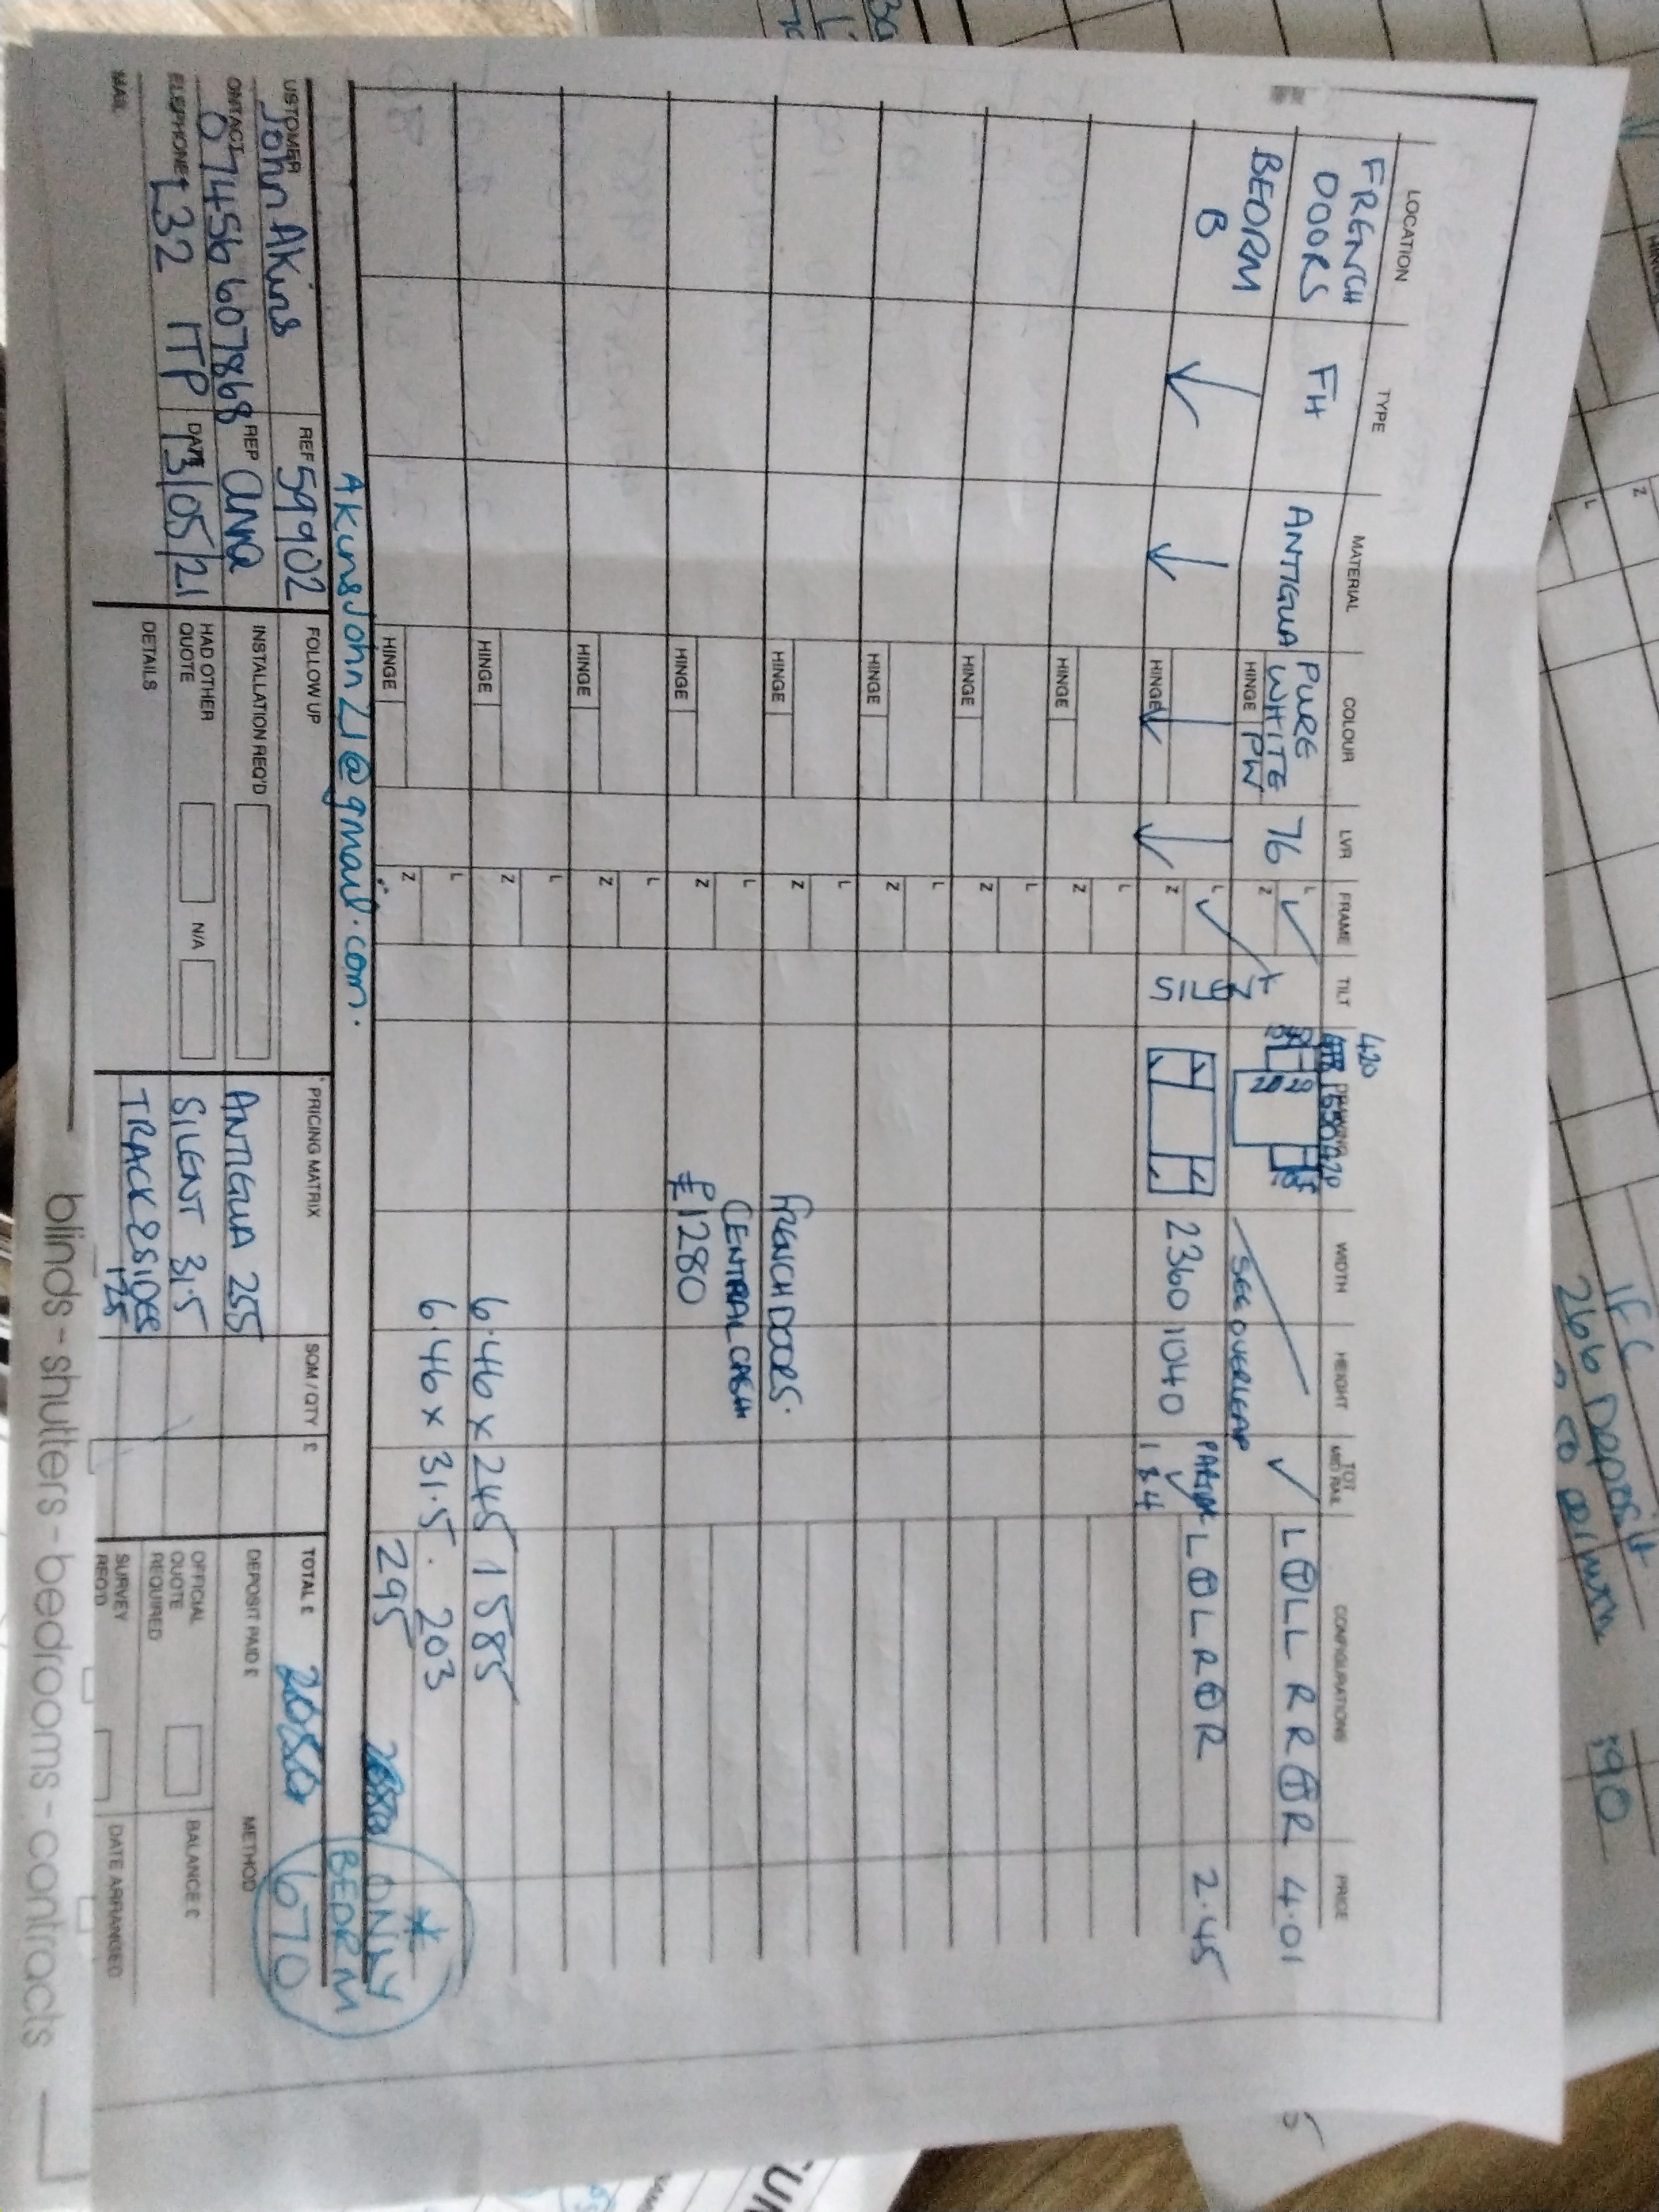 LOCATION TYPE MATERIAL COLOUR LVR FRAME TILT WIDTH HEIGHT TOT MID RAIL CONFIGURATIONS PRICE
420
FRENCH DOORS FH ANTIGUA PURE WHITE 76 L ✓ ✓ L T LL R R T R 4.01
HINGE PW Z
SEE OVERLEAP
BEDRM B L ✓ PARTIAL ✓ L T L R T R 2.45
HINGE Z 2360 1040
L
HINGE Z
L
HINGE Z
L
HINGE Z
L
HINGE Z FRENCH DOORS.
L CENTRAL CASH
HINGE Z £1280
L
HINGE Z
L
HINGE Z 6.46 x 245 1585
L 6.46 x 31.5. 203
HINGE Z 295
AkinsJohn21@gmail.com.
* ONLY BEDRM 670
USTOMER John Akins REF 59902 FOLLOW UP PRICING MATRIX SQM / QTY £ TOTAL £
ONTACT 07456 607868 REP anna INSTALLATION REQ'D ANTIGUA 255 DEPOSIT PAID £ METHOD
ELEPHONE L32 1TP DATE 13/05/21 HAD OTHER QUOTE N/A SILENT 31.5 OFFICIAL QUOTE REQUIRED BALANCE £
MAIL DETAILS TRACK 2 SIDES 125 SURVEY REQ'D DATE ARRANGED
blinds - shutters - bedrooms - contracts
IFC
266 Deposit
190